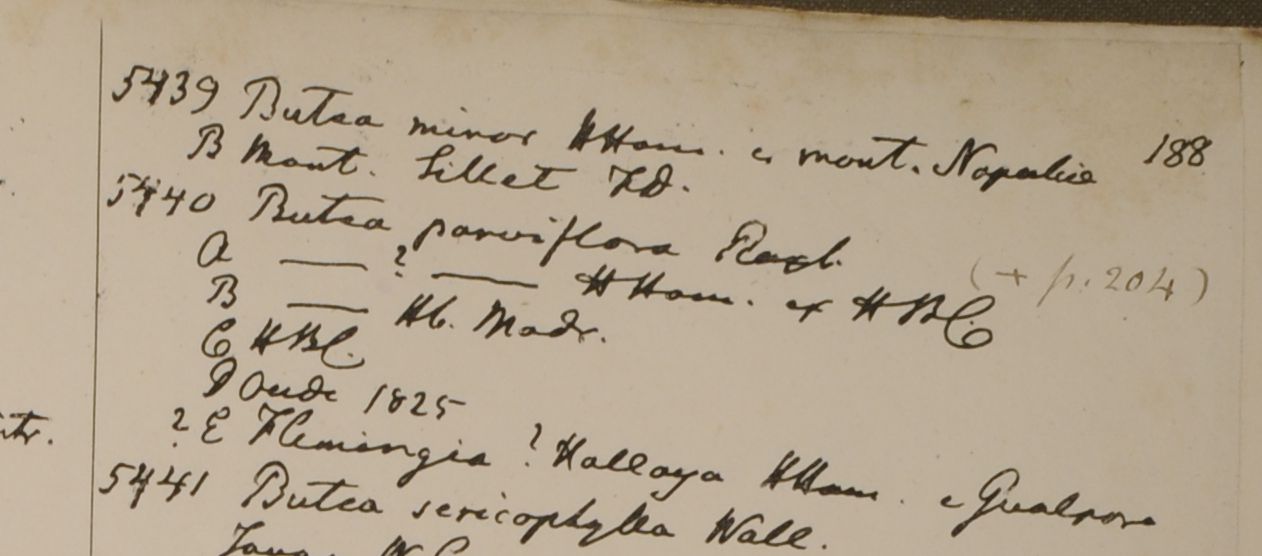 5439 Butea minor HHam. e mont. Napalia 188
B Mont. Sillet FD.
5440 Butea parviflora Roxb.
(+ p. 204)
A — ? — HHam. ex HBC
B — Hb. Madr.
C HBC.
D Oude 1825
? E Flemingia ? Hallaya HHam. e Gualpara
5441 Butea sericophylla Wall.